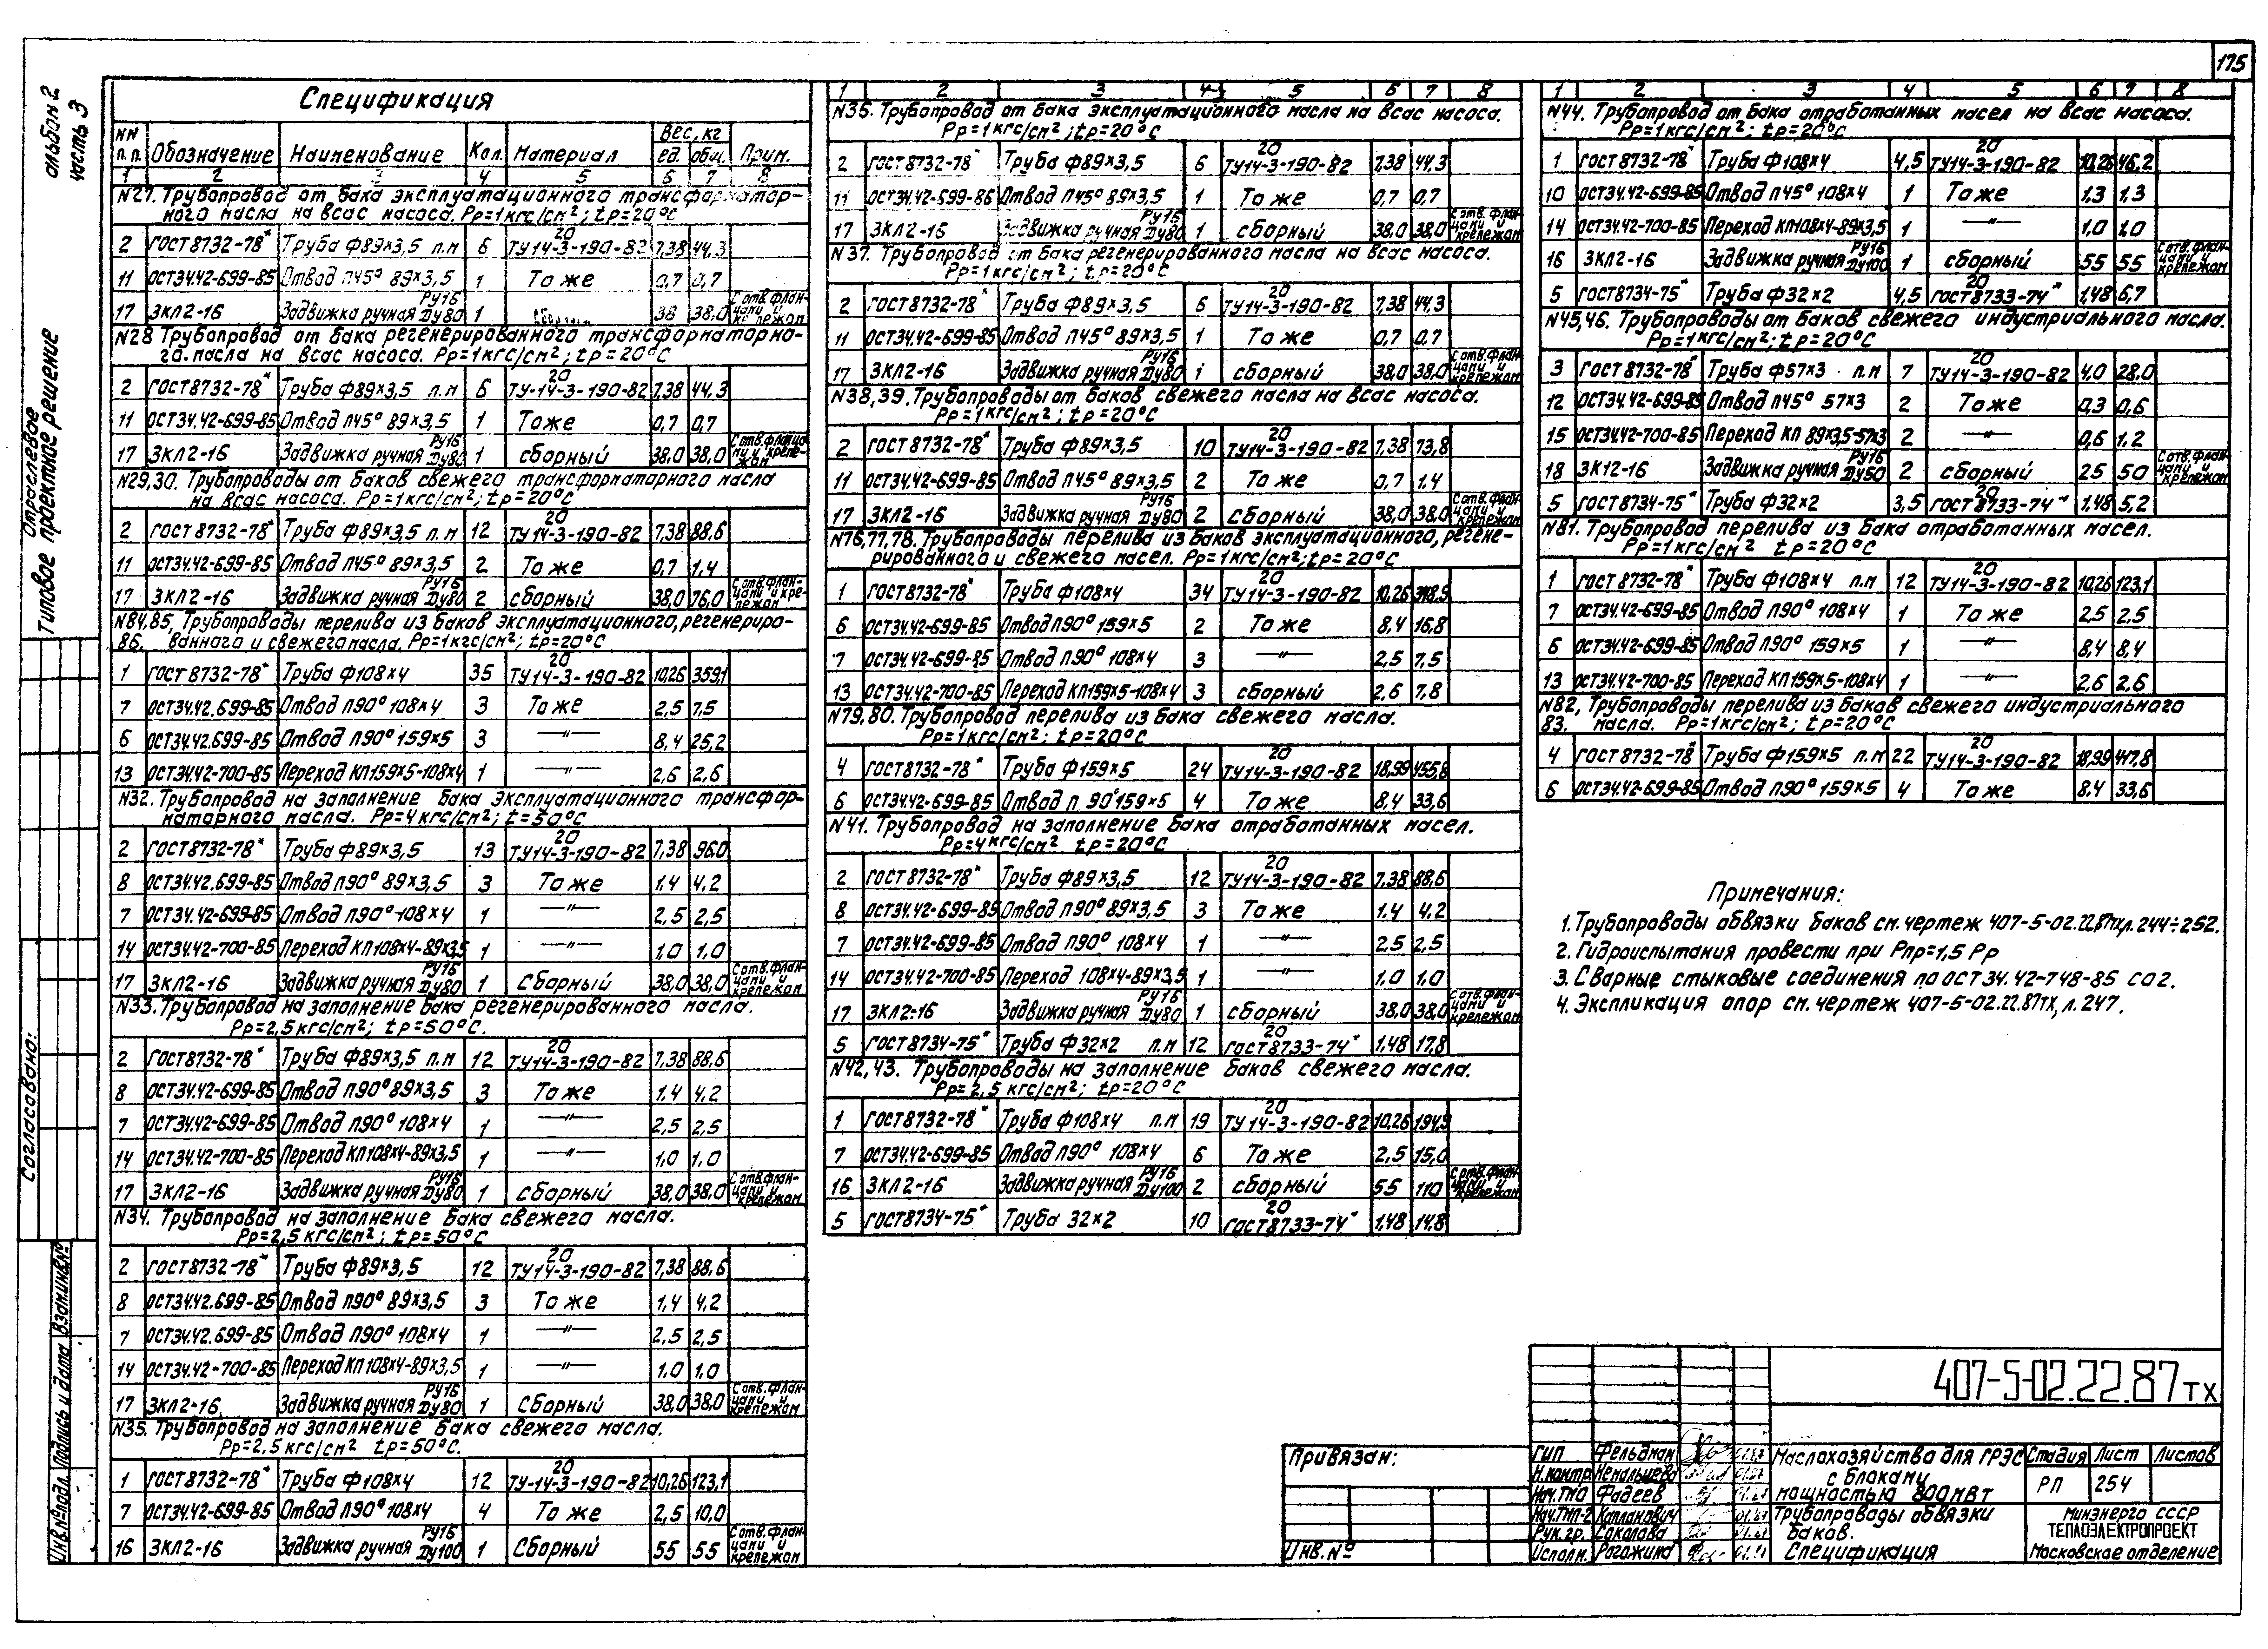 175
альбом 2
часть 3
Отраслевое
Типовое проектное решение
Согласовано:
Взам.инв.№
Подпись и дата
Инв.№подл.
Спецификация
NN п.п. Обозначение Наименование Кол. Материал Вес, кг ед. общ. Прим.
1 2 3 4 5 6 7 8
N27. Трубопровод от бака эксплуатационного трансформатор-
ного масла на всас насоса. Рр=1кгс/см²; tр=20°С
2 ГОСТ8732-78* Труба ф89×3,5 п.м 6 20 ТУ14-3-190-82 7,38 44,3
11 ОСТ34.42-699-85 Отвод П45° 89×3,5 1 То же 0,7 0,7
17 ЗКЛ2-16 Задвижка ручная Ру16 Ду80 1 38 38,0 С отв. флан-цами и крепежом
N28 Трубопровод от бака регенерированного трансформаторно-
го масла на всас насоса. Рр=1кгс/см²; tр=20°С
2 ГОСТ8732-78* Труба ф89×3,5 п.м 6 20 ТУ-14-3-190-82 7,38 44,3
11 ОСТ34.42-699-85 Отвод П45° 89×3,5 1 То же 0,7 0,7
17 ЗКЛ2-16 Задвижка ручная Ру16 Ду80 1 сборный 38,0 38,0 С отв. фланца-ми и крепе-жом
N29,30. Трубопроводы от баков свежего трансформаторного масла
на всас насоса. Рр=1кгс/см²; tр=20°С
2 ГОСТ8732-78* Труба ф89×3,5 п.м 12 20 ТУ14-3-190-82 7,38 88,6
11 ОСТ34.42-699-85 Отвод П45° 89×3,5 2 То же 0,7 1,4
17 ЗКЛ2-16 Задвижка ручная Ру16 Ду80 2 сборный 38,0 76,0 С отв. флан-цами и кре-пежом
N84,85, Трубопроводы перелива из баков эксплуатационного, регенериро-
86. ванного и свежего масла. Рр=1кгс/см²; tр=20°С
1 ГОСТ8732-78* Труба ф108×4 35 20 ТУ14-3-190-82 10,26 359,1
7 ОСТ34.42.699-85 Отвод П90° 108×4 3 То же 2,5 7,5
6 ОСТ34.42.699-85 Отвод П90° 159×5 3 —"— 8,4 25,2
13 ОСТ34.42-700-85 Переход КП159×5-108×4 1 —"— 2,6 2,6
N32. Трубопровод на заполнение бака эксплуатационного трансфор-
маторного масла. Рр=4кгс/см²; t=50°С
2 ГОСТ8732-78* Труба ф89×3,5 13 20 ТУ14-3-190-82 7,38 96,0
8 ОСТ34.42.699-85 Отвод П90° 89×3,5 3 То же 1,4 4,2
7 ОСТ34.42-699-85 Отвод П90° 108×4 1 —"— 2,5 2,5
14 ОСТ34.42-700-85 Переход КП108×4-89×3,5 1 —"— 1,0 1,0
17 ЗКЛ2-16 Задвижка ручная Ру16 Ду80 1 Сборный 38,0 38,0 С отв. флан-цами и крепежом
N33. Трубопровод на заполнение бака регенерированного масла.
Рр=2,5кгс/см²; tр=50°С.
2 ГОСТ8732-78* Труба ф89×3,5 п.м 12 20 ТУ14-3-190-82 7,38 88,6
8 ОСТ34.42-699-85 Отвод П90° 89×3,5 3 То же 1,4 4,2
7 ОСТ34.42-699-85 Отвод П90° 108×4 1 —"— 2,5 2,5
14 ОСТ34.42-700-85 Переход КП108×4-89×3,5 1 —"— 1,0 1,0
17 ЗКЛ2-16 Задвижка ручная Ру16 Ду80 1 сборный 38,0 38,0 С отв. флан-цами и крепежом
N34. Трубопровод на заполнение бака свежего масла.
Рр=2,5кгс/см²; tр=50°С
2 ГОСТ8732-78* Труба ф89×3,5 12 20 ТУ14-3-190-82 7,38 88,6
8 ОСТ34.42.699-85 Отвод П90° 89×3,5 3 То же 1,4 4,2
7 ОСТ34.42.699-85 Отвод П90° 108×4 1 —"— 2,5 2,5
14 ОСТ34.42-700-85 Переход КП108×4-89×3,5 1 —"— 1,0 1,0
17 ЗКЛ2-16. Задвижка ручная Ру16 Ду80 1 Сборный 38,0 38,0 С отв. флан-цами и крепежом
N35. Трубопровод на заполнение бака свежего масла.
Рр=2,5кгс/см² tр=50°С.
1 ГОСТ8732-78* Труба ф108×4 12 20 ТУ-14-3-190-82 10,26 123,1
7 ОСТ34.42-699-85 Отвод П90° 108×4 4 То же 2,5 10,0
16 ЗКЛ2-16 Задвижка ручная Ру16 Ду100 1 Сборный 55 55 С отв. флан-цами и крепежом
1 2 3 4 5 6 7 8
N36. Трубопровод от бака эксплуатационного масла на всас насоса.
Рр=1кгс/см²; tр=20°С
2 ГОСТ8732-78* Труба ф89×3,5 6 20 ТУ14-3-190-82 7,38 44,3
11 ОСТ34.42-699-86 Отвод П45° 89×3,5 1 То же 0,7 0,7
17 ЗКЛ2-16 Задвижка ручная Ру16 Ду80 1 сборный 38,0 38,0 С отв. флан-цами и крепежом
N37. Трубопровод от бака регенерированного масла на всас насоса.
Рр=1кгс/см²; tр=20°С
2 ГОСТ8732-78* Труба ф89×3,5 6 20 ТУ14-3-190-82 7,38 44,3
11 ОСТ34.42-699-85 Отвод П45° 89×3,5 1 То же 0,7 0,7
17 ЗКЛ2-16 Задвижка ручная Ру16 Ду80 1 сборный 38,0 38,0 С отв. флан-цами и крепежом
N38,39. Трубопроводы от баков свежего масла на всас насоса.
Рр=1кгс/см²; tр=20°С
2 ГОСТ8732-78* Труба ф89×3,5 10 20 ТУ14-3-190-82 7,38 73,8
11 ОСТ34.42-699-85 Отвод П45° 89×3,5 2 То же 0,7 1,4
17 ЗКЛ2-16 Задвижка ручная Ру16 Ду80 2 Сборный 38,0 38,0 С отв. флан-цами и крепежом
N76,77,78. Трубопроводы перелива из баков эксплуатационного, регене-
рированного и свежего масел. Рр=1кгс/см²; tр=20°С
1 ГОСТ8732-78* Труба ф108×4 34 20 ТУ14-3-190-82 10,26 348,9
6 ОСТ34.42-699-85 Отвод П90° 159×5 2 То же 8,4 16,8
7 ОСТ34.42-699-85 Отвод П90° 108×4 3 —"— 2,5 7,5
13 ОСТ34.42-700-85 Переход КП159×5-108×4 3 сборный 2,6 7,8
N79,80. Трубопровод перелива из бака свежего масла.
Рр=1кгс/см²; tр=20°С
4 ГОСТ8732-78* Труба ф159×5 24 20 ТУ14-3-190-82 18,99 455,8
6 ОСТ34.42-699-85 Отвод П 90° 159×5 4 То же 8,4 33,6
N41. Трубопровод на заполнение бака отработанных масел.
Рр=4кгс/см² tр=20°С
2 ГОСТ8732-78* Труба ф89×3,5 12 20 ТУ14-3-190-82 7,38 88,6
8 ОСТ34.42-699-85 Отвод П90° 89×3,5 3 То же 1,4 4,2
7 ОСТ34.42-699-85 Отвод П90° 108×4 1 —"— 2,5 2,5
14 ОСТ34.42-700-85 Переход 108×4-89×3,5 1 —"— 1,0 1,0
17 ЗКЛ2-16 Задвижка ручная Ру16 Ду80 1 сборный 38,0 38,0 С отв. флан-цами и крепежом
5 ГОСТ8734-75* Труба ф32×2 п.м 12 20 ГОСТ8733-74* 1,48 17,8
N42,43. Трубопроводы на заполнение баков свежего масла.
Рр=2,5кгс/см²; tр=20°С
1 ГОСТ8732-78* Труба ф108×4 п.м 19 20 ТУ14-3-190-82 10,26 194,9
7 ОСТ34.42-699-85 Отвод П90° 108×4 6 То же 2,5 15,0
16 ЗКЛ2-16 Задвижка ручная Ру16 Ду100 2 сборный 55 110 С отв. флан-цами и крепежом
5 ГОСТ8734-75* Труба 32×2 10 20 ГОСТ8733-74* 1,48 14,8
1 2 3 4 5 6 7 8
N44. Трубопровод от бака отработанных масел на всас насоса.
Рр=1кгс/см²; tр=20°С
1 ГОСТ8732-78* Труба ф108×4 4,5 20 ТУ14-3-190-82 10,26 46,2
10 ОСТ34.42-699-85 Отвод П45° 108×4 1 То же 1,3 1,3
14 ОСТ34.42-700-85 Переход КП108×4-89×3,5 1 —"— 1,0 1,0
16 ЗКЛ2-16 Задвижка ручная Ру16 Ду100 1 сборный 55 55 С отв. флан-цами и крепежом
5 ГОСТ8734-75* Труба ф32×2 4,5 20 ГОСТ8733-74* 1,48 6,7
N45,46. Трубопроводы от баков свежего индустриального масла.
Рр=1кгс/см²; tр=20°С
3 ГОСТ8732-78* Труба ф57×3 п.м 7 20 ТУ14-3-190-82 4,0 28,0
12 ОСТ34.42-699-85 Отвод П45° 57×3 2 То же 0,3 0,6
15 ОСТ34.42-700-85 Переход КП 89×3,5-57×3 2 —"— 0,6 1,2
18 ЗК12-16 Задвижка ручная Ру16 Ду50 2 сборный 25 50 С отв. флан-цами и крепежом
5 ГОСТ8734-75* Труба ф32×2 3,5 20 ГОСТ8733-74* 1,48 5,2
N81. Трубопровод перелива из бака отработанных масел.
Рр=1кгс/см² tр=20°С
1 ГОСТ8732-78* Труба ф108×4 п.м 12 20 ТУ14-3-190-82 10,26 123,1
7 ОСТ34.42-699-85 Отвод П90° 108×4 1 То же 2,5 2,5
6 ОСТ34.42-699-85 Отвод П90° 159×5 1 —"— 8,4 8,4
13 ОСТ34.42-700-85 Переход КП159×5-108×4 1 —"— 2,6 2,6
N82, Трубопроводы перелива из баков свежего индустриального
83. масла. Рр=1кгс/см²; tр=20°С
4 ГОСТ8732-78* Труба ф159×5 п.м 22 20 ТУ14-3-190-82 18,99 417,8
6 ОСТ34.42-699-85 Отвод П90° 159×5 4 То же 8,4 33,6
Примечания:
1. Трубопроводы обвязки баков см. чертеж 407-5-02.22.87тх,л.244÷252.
2. Гидроиспытания провести при Рпр=1,5 Рр
3. Сварные стыковые соединения по ОСТ 34.42-748-85 С02.
4. Экспликация опор см. чертеж 407-5-02.22.87тх, л.247.
Привязан:
Инв.№
407-5-02.22.87 тх
ГИП Фельдман 01.87
Н.контр.
Нач.ТМО Фадеев
Нач.ТМП-2 Капланович
Рук.гр. Соколова
Исполн. Рогожина
Маслохозяйство для ГРЭС
с блоками
мощностью 800МВт
Стадия Лист Листов
РП 254
Трубопроводы обвязки
баков.
Спецификация
Минэнерго СССР
ТЕПЛОЭЛЕКТРОПРОЕКТ
Московское отделение